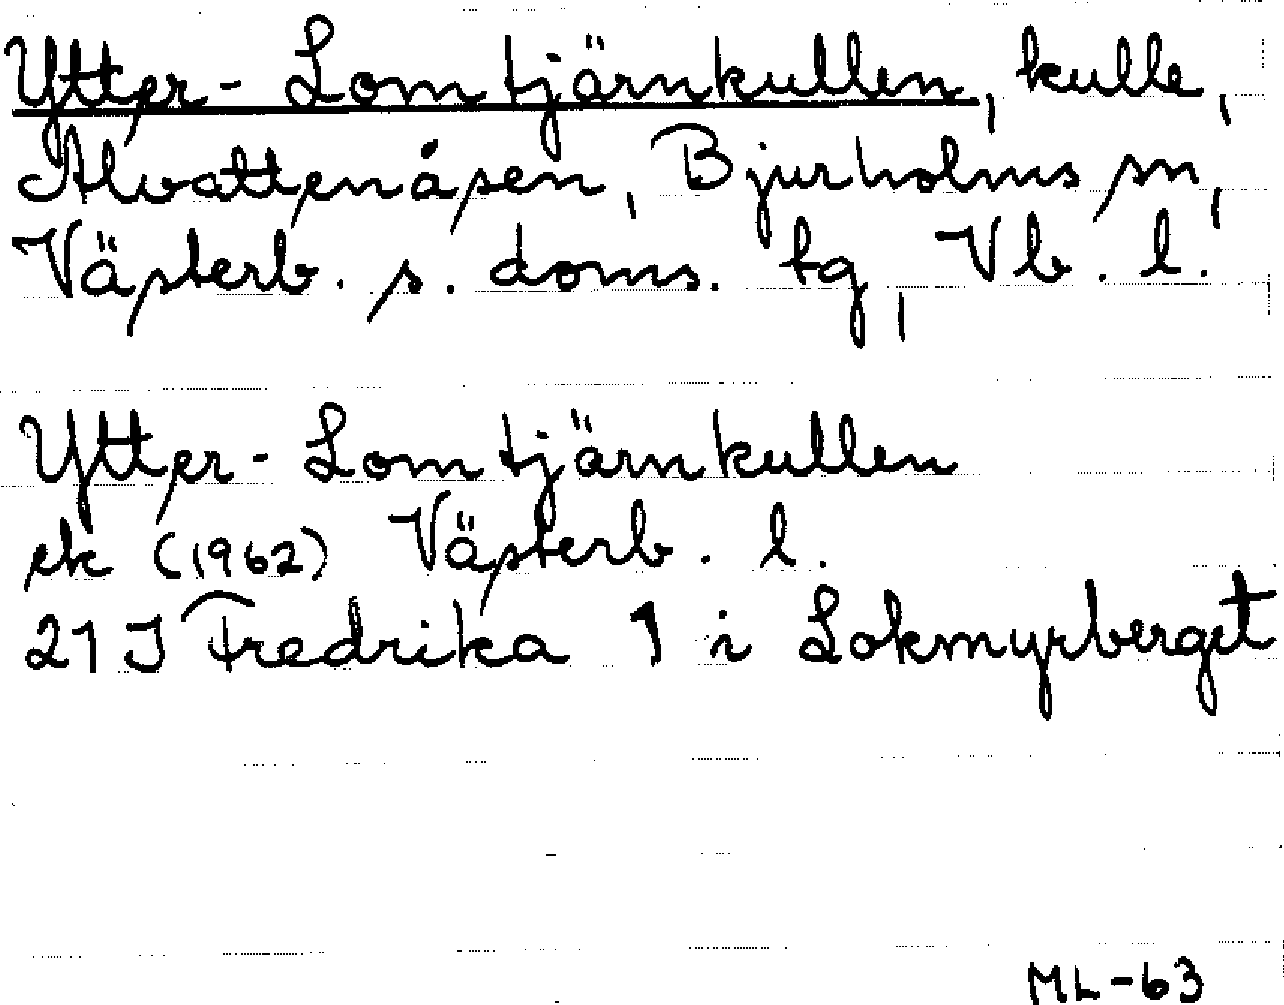 Ytter-Lomtjärnkullen, kulle,
Alvattenåsen, Bjurholms sn,
Västerb. s. doms. tg, Vb. l.
Ytter-Lomtjärnkullen
ek (1962) Västerb. l.
21 J Fredrika 1 i Lokmyrberget
ML-63